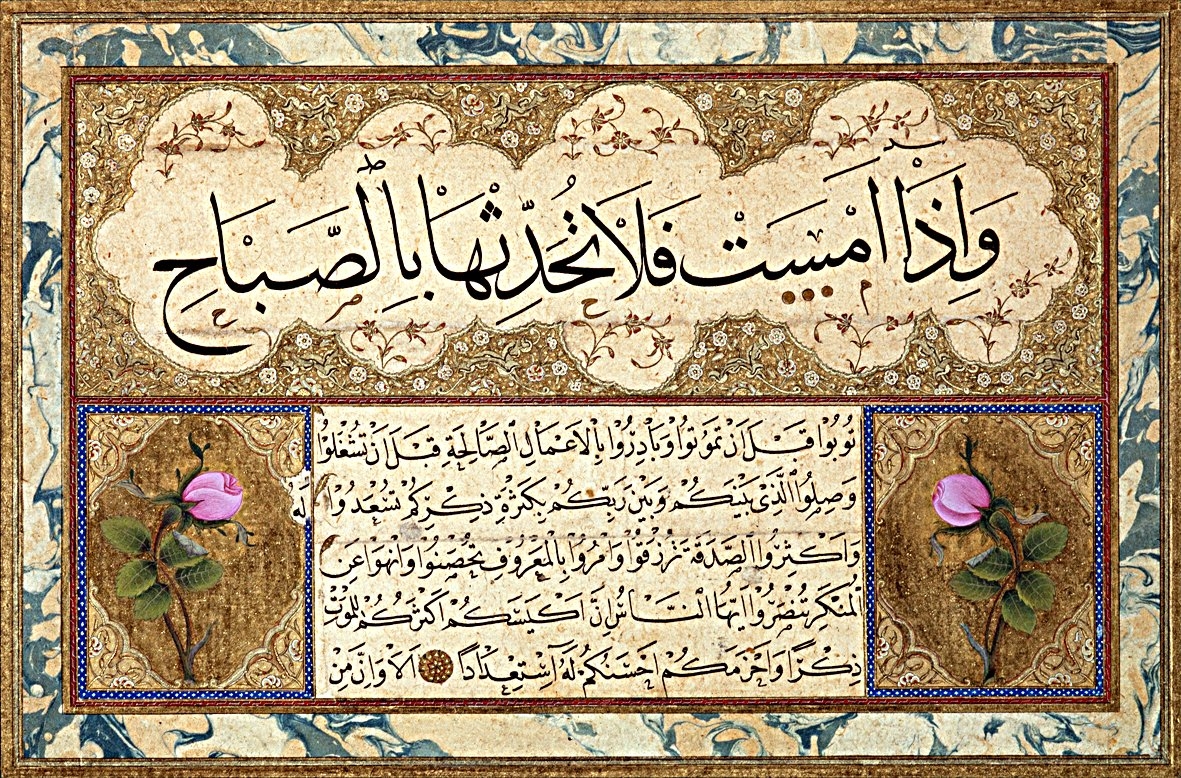 وَاِذَا اَمْسَيْتَ فَلَا تُحَدِّثْهَا بِالصَّبَاحِ
تُوبُوا قَبْلَ اَنْ تَمُوتُوا وَبَادِرُوا بِالْاَعْمَالِ الصَّالِحَةِ قَبْلَ اَنْ تُشْغَلُوا
وَصِلُوا الَّذِى بَيْنَكُمْ وَبَيْنَ رَبِّكُمْ بِكَثْرَةِ ذِكْرِكُمْ لَهُ تَسْعَدُوا
وَاَكْثِرُوا الصَّدَقَةَ تُرْزَقُوا وَامُرُوا بِالْمَعْرُوفِ تُخْصَبُوا وَانْهَوْا عَنِ
الْمُنْكَرِ تُنْصَرُوا اَيُّهَا النَّاسُ اِنَّ اَكْيَسَكُمْ اَكْثَرُكُمْ لِلْمَوْتِ
ذِكْرًا وَاَحْزَمَكُمْ اَحْسَنُكُمْ لَهُ اسْتِعْدَادًا اَلَا وَاِنَّ مِنْ